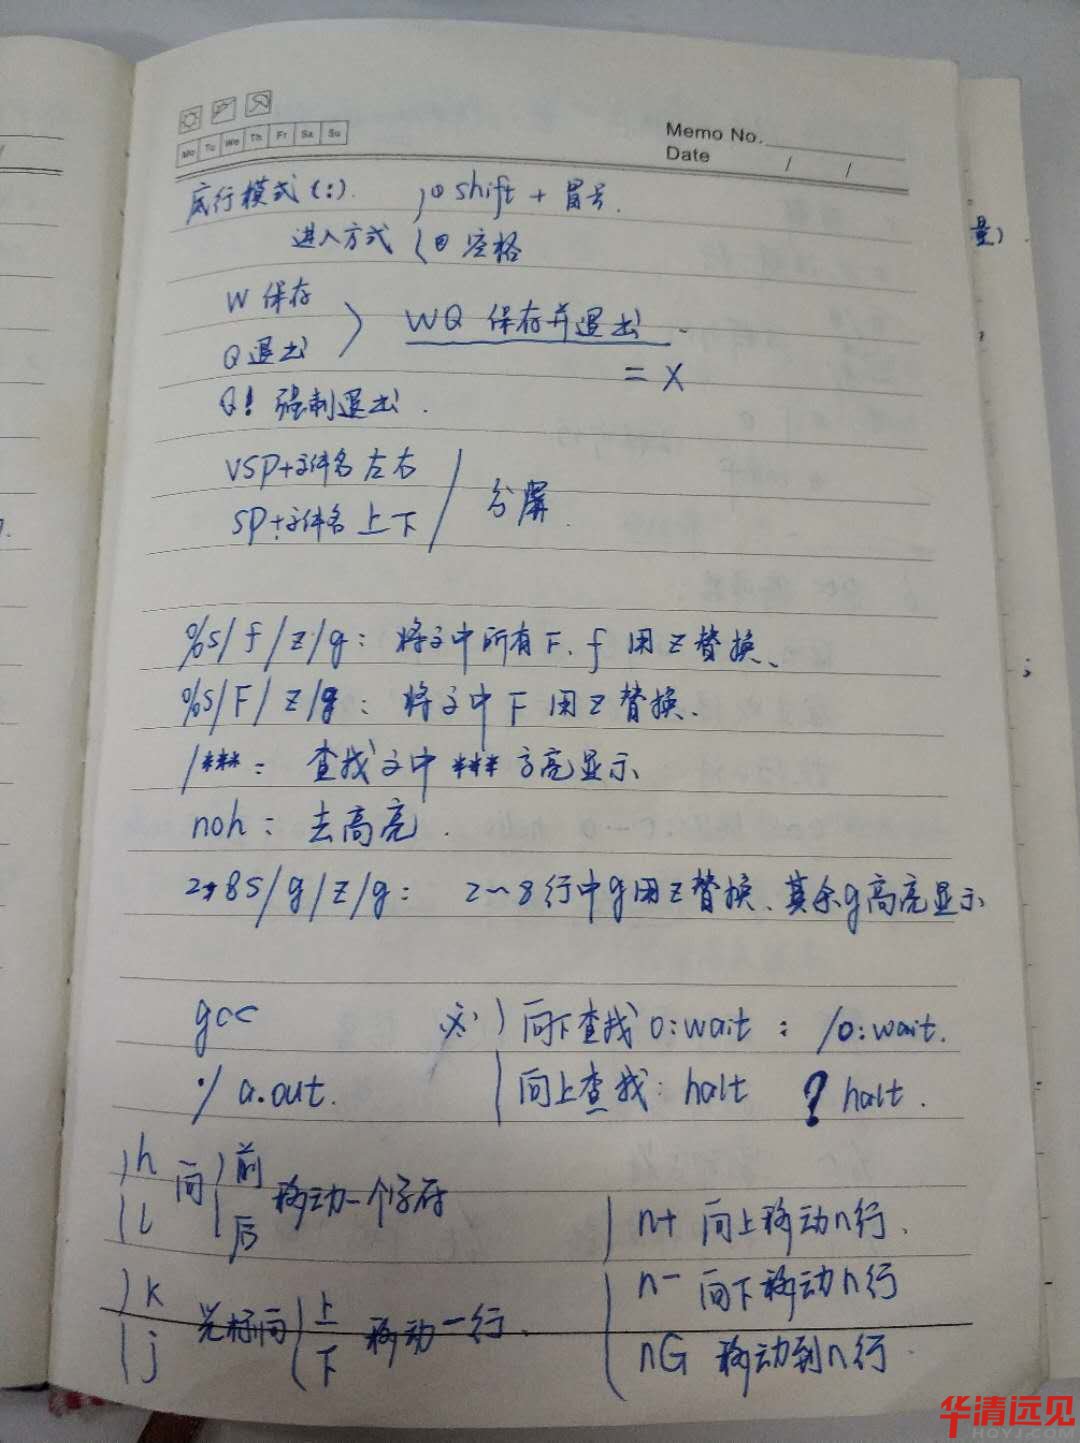 Mo Tu We Th Fr Sa Su
Memo No.
Date / /
底行模式(:). ① shift + 冒号.
进入方式 ② 空格
量)
W 保存
Q 退出
WQ 保存并退出
= X
Q! 强制退出.
VSP+文件名 左右
SP+文件名 上下
分屏
%s/f/z/g: 将文中所有F、f用z替换、
%s/F/z/g: 将文中F用z替换.
/***: 查找文中***高亮显示
noh: 去高亮.
2,8s/g/z/g: 2~8行中g用z替换、其余g高亮显示
gcc
向下查找 o:wait : /o:wait.
./a.out.
向上查找: halt ? halt.
h
l
向
前
后
移动一个字符
n+ 向上移动n行.
n- 向下移动n行
nG 移动到n行.
k
j
光标向
上
下
移动一行.
华清远见
HQYJ.COM